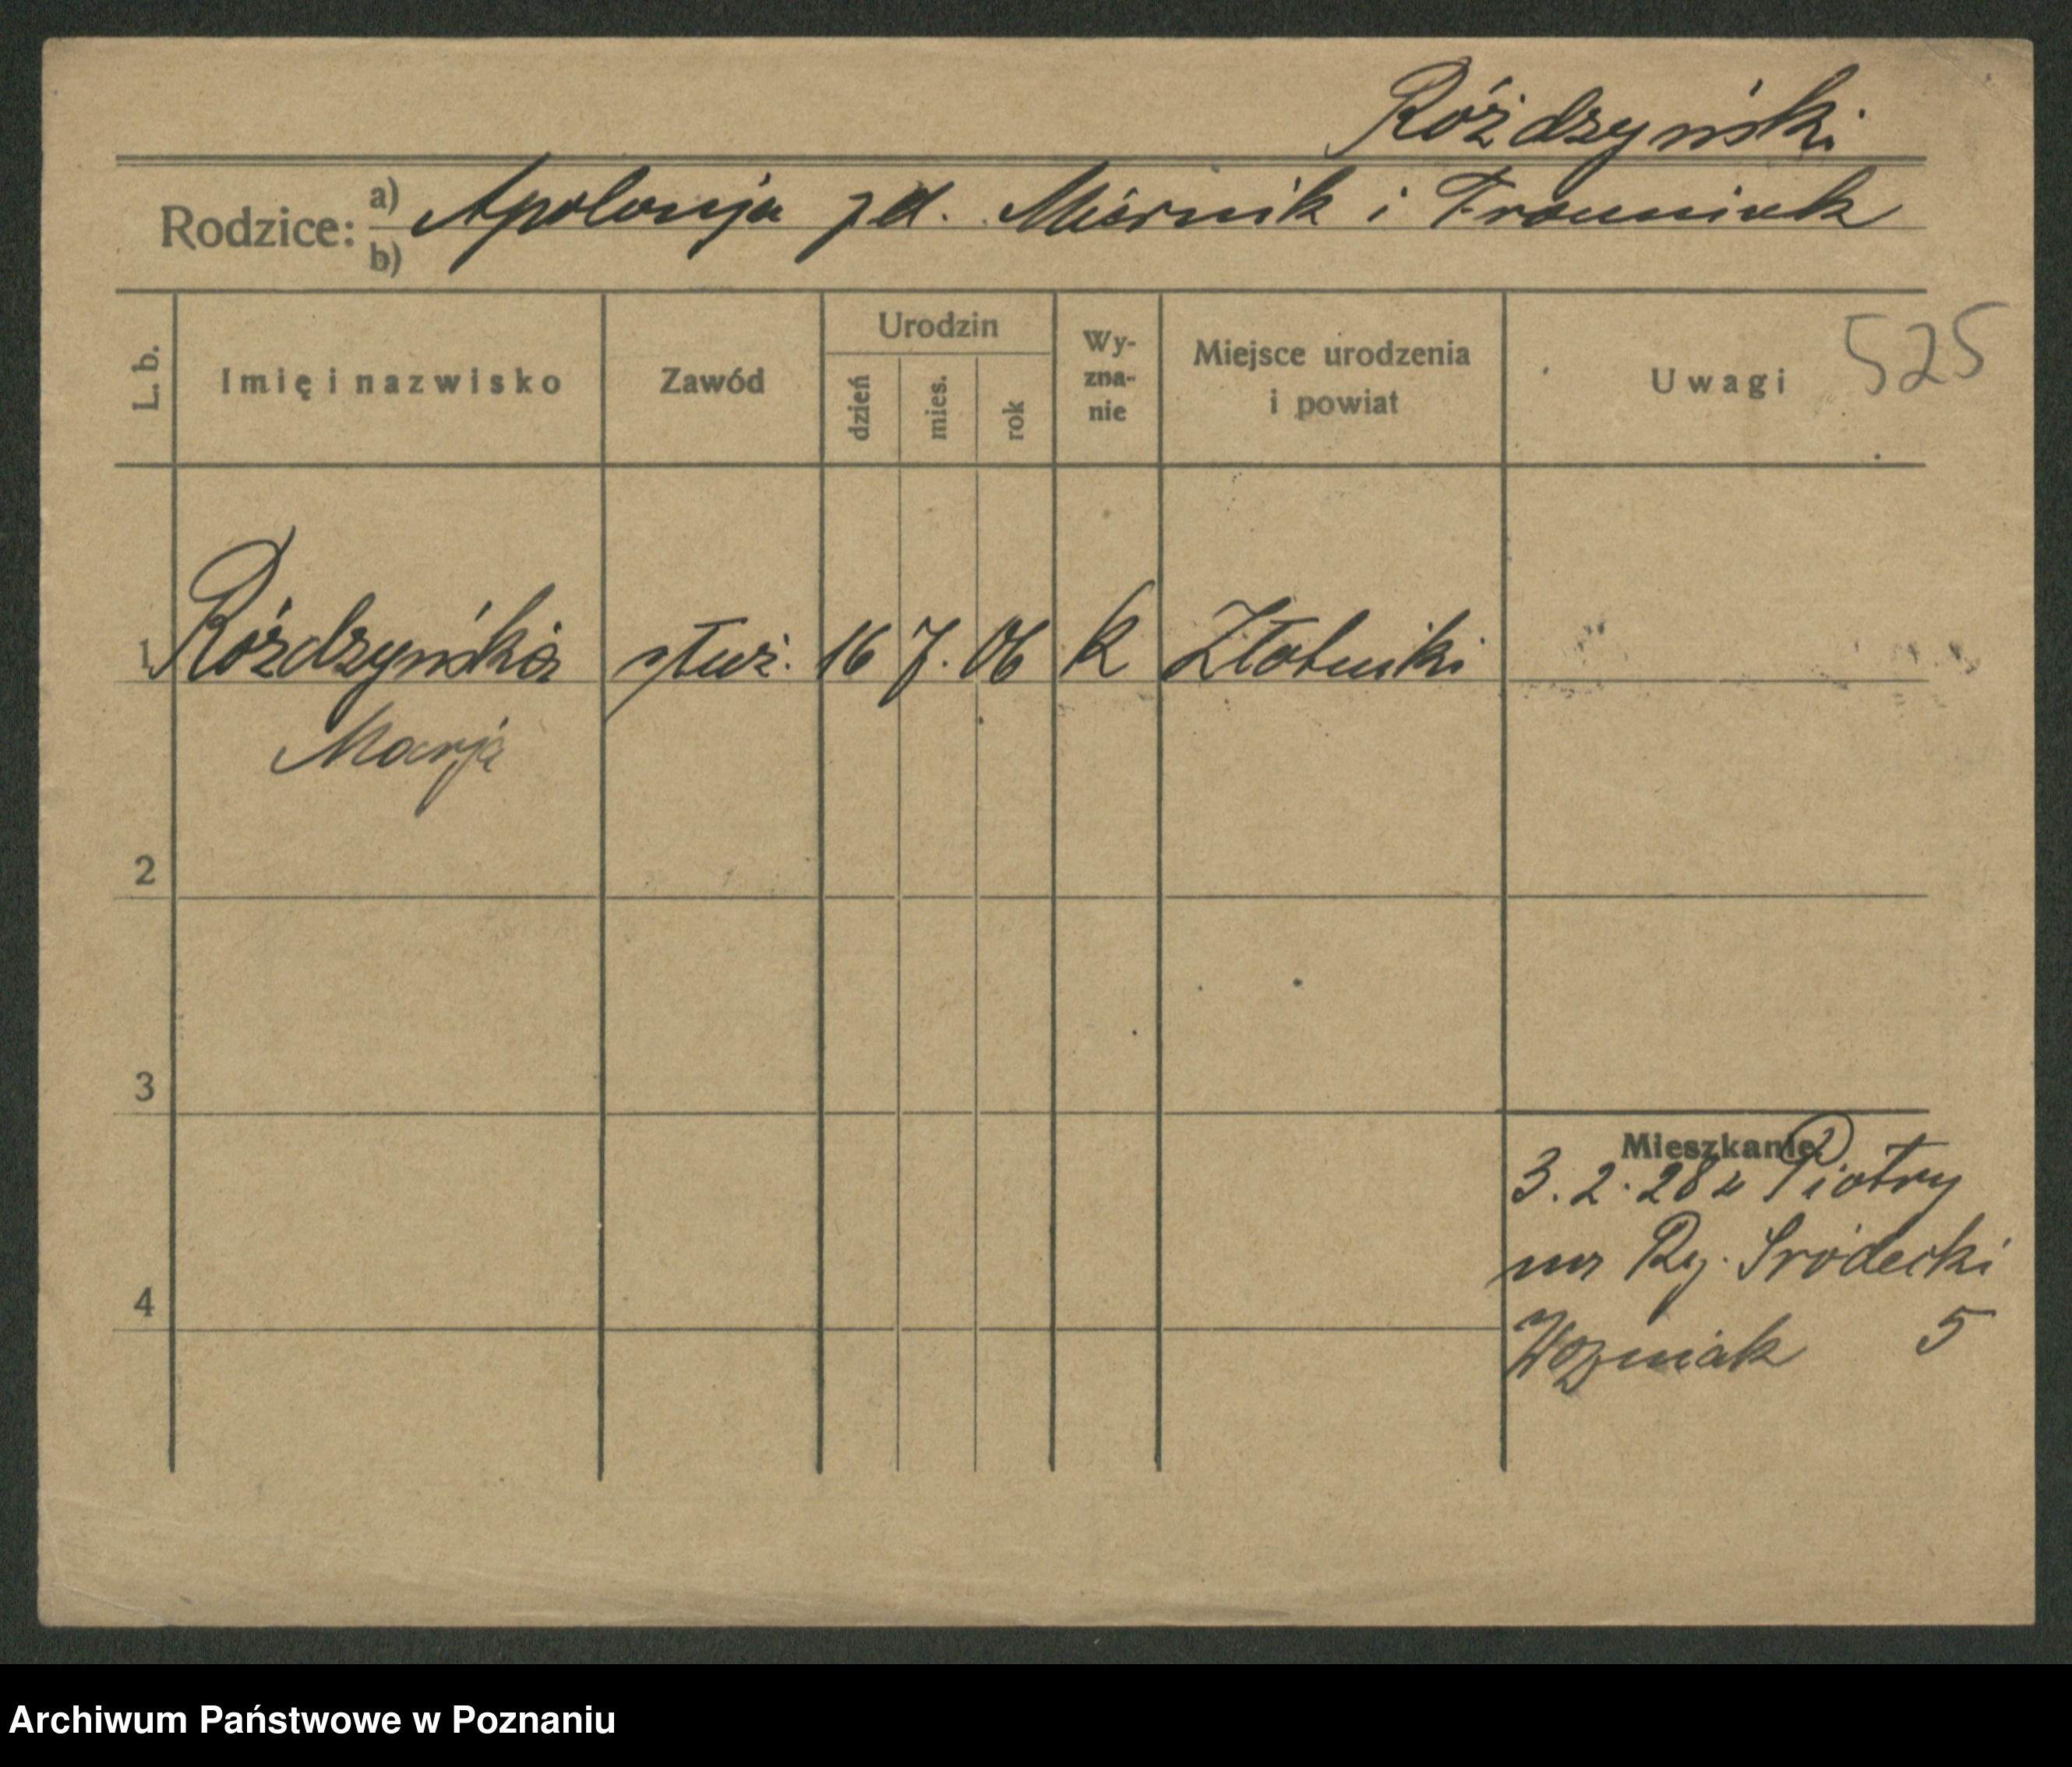 Różdzyński
Rodzice: a) Apolonja zd. Miernik i Franciszek
b)
L. b. Imię i nazwisko Zawód Urodzin dzień mies. rok Wy-zna-nie Miejsce urodzenia i powiat Uwagi 525
1 Różdzyńska służ. 16 7. 06 k Złotniki
Marja
2
3
Mieszkanie
3. 2. 28 z Piotry
na Ry. Śródecki
4
Woźniak 5
Archiwum Państwowe w Poznaniu